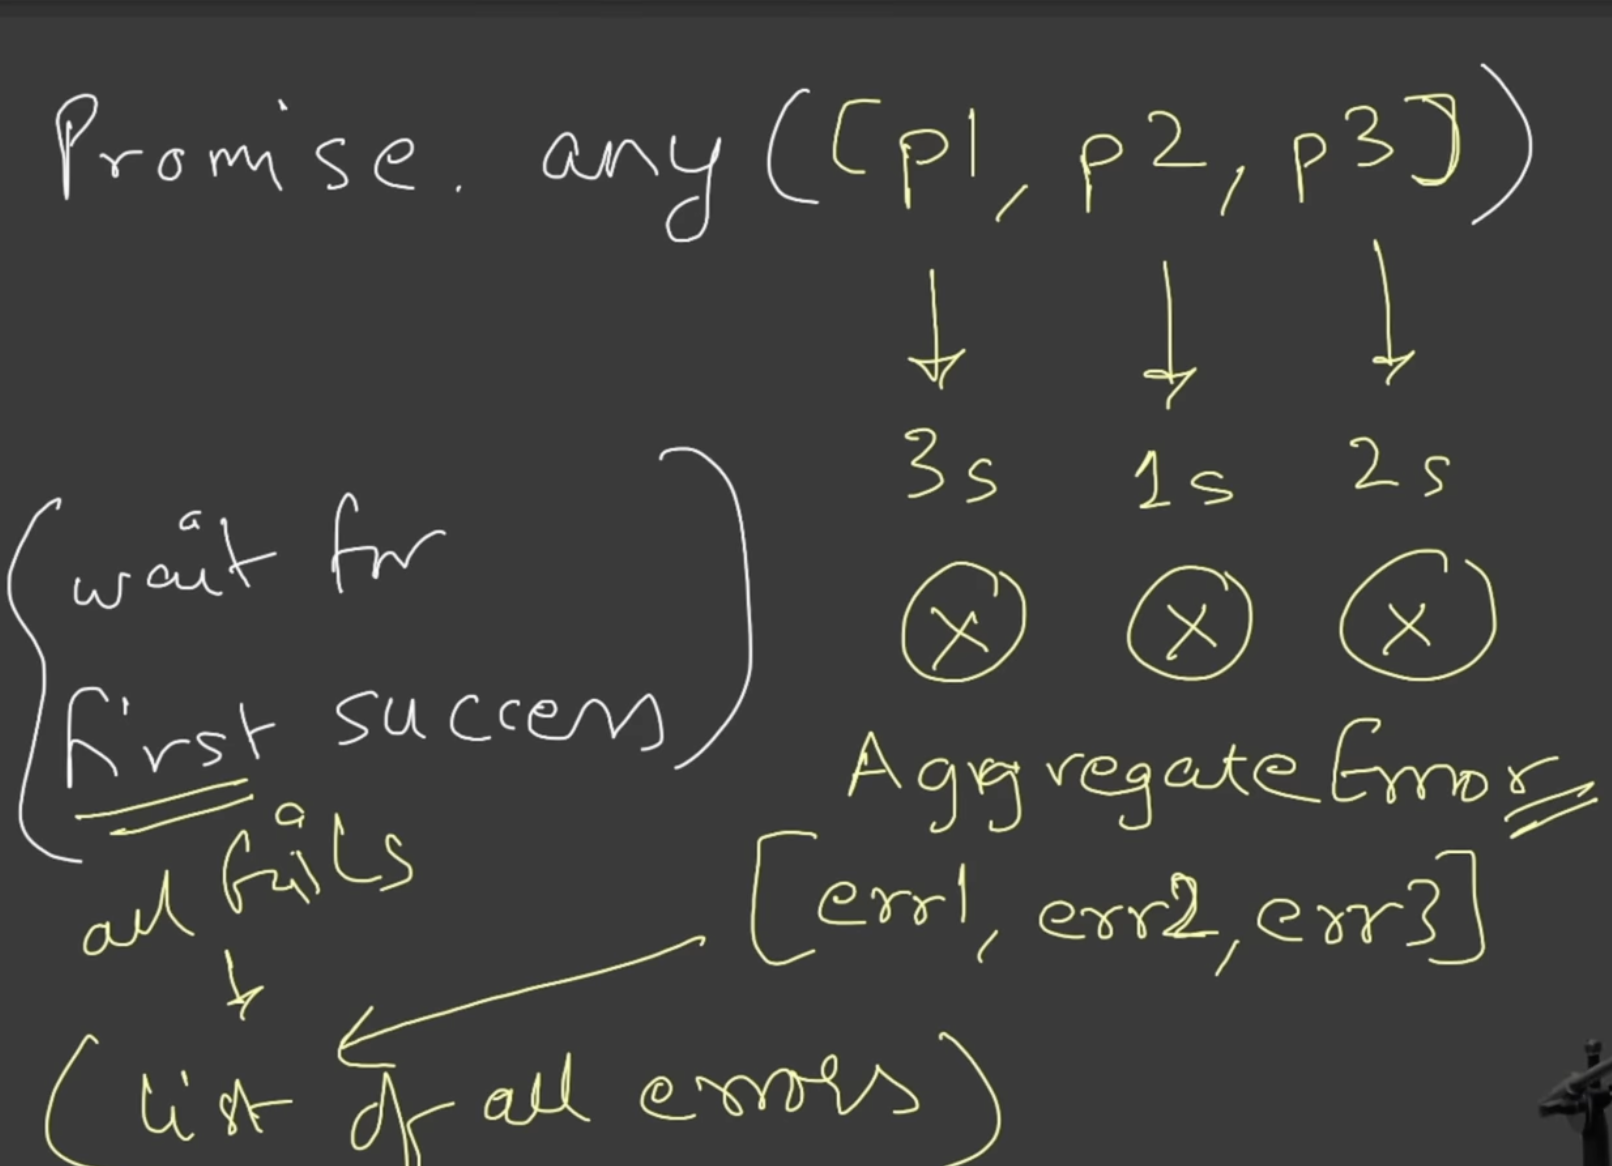 Promise. any([p1, p2, p3])
3s 1s 2s
X X X
wait for
first success
AggregateError
all fails
[err1, err2, err3]
(list of all errors)